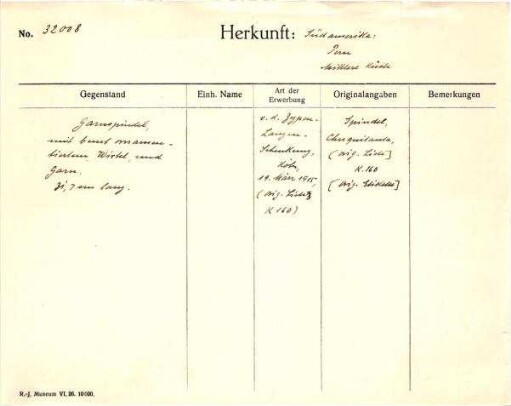 No. 32008
Herkunft: Südamerika:
Peru
Mittlere Küste
Gegenstand
Einh. Name
Art der
Erwerbung
Originalangaben
Bemerkungen
Garnspindel,
mit bunt ornamen-
tiertem Wirtel, und
Garn.
lang.
v. d. Zypen-
Schenkung,
Köln,
19. März 1915,
(orig. Liste
K 160)
Spindel,
(orig. Liste)
K. 160
R.-J. Museum VI. 26. 10000.